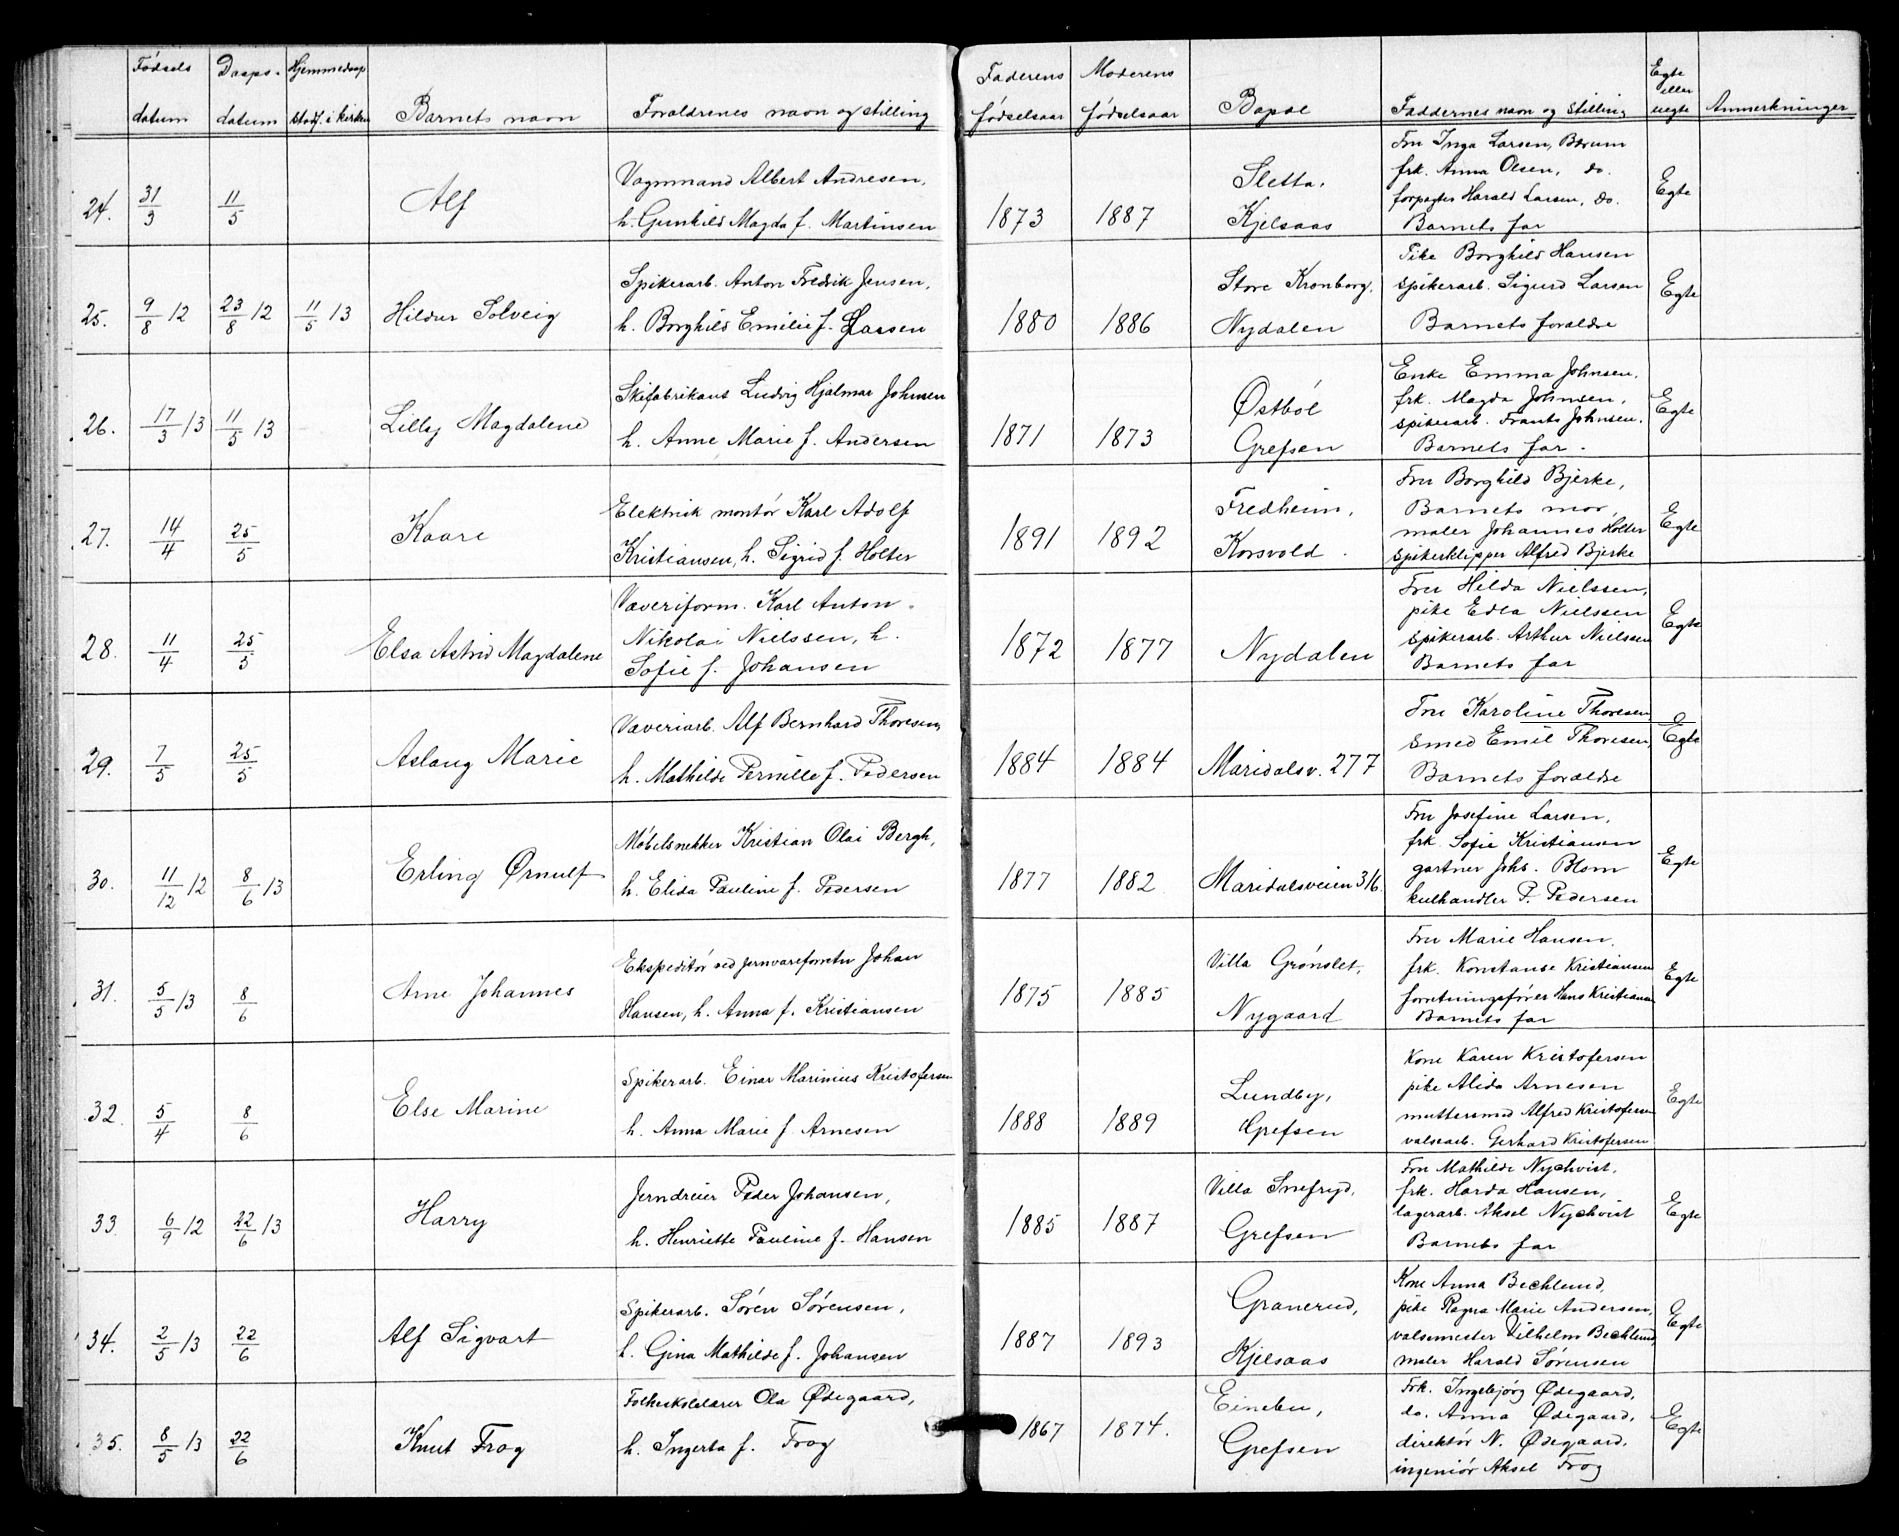 Fødsels datum | Daaps-datum | Hjemmedaap stadf. i kirken | Barnets navn | Forældrenes navn og stilling | Faderens fødselsaar | Moderens fødselsaar | Bopæl | Faddernes navn og stilling | Egte eller uegte | Anmerkninger
24. | 31/3 | 11/5 | Alf | Vognmand Albert Andresen,
h. Gunhild Magda f. Martinsen | 1873 | 1887 | Sletta,
Kjelsaas | Fru Inga Larsen, Bærum
frk. Anna Olsen, do.
forpagter Harald Larsen, do.
Barnets far | Egte
25. | 9/8 12 | 23/8 12 | 11/5 13 | Hildur Solveig | Spikerarb. Anton Fredrik Jensen,
h. Borghild Emilie f. Larsen | 1880 | 1886 | Store Kronborg,
Nydalen | Pike Borghild Hansen
spikerarb. Sigurd Larsen
Barnets forældre | Egte
26. | 17/3 13 | 11/5 13 | Lilly Magdalene | Skifabrikant Ludvig Hjalmar Johnsen
h. Anne Marie f. Andersen | 1871 | 1873 | Østbøl
Grefsen | Enke Emma Johnsen,
frk. Magda Johnsen,
spikerarb. Frants Johnsen.
Barnets far. | Egte
27. | 14/4 | 25/5 | Kaare | Elektrisk montør Karl Adolf
Kristiansen, h. Sigrid f. Holter | 1891 | 1892 | Fredheim,
Korsvold. | Fru Borghild Bjerke,
Barnets mor,
maler Johannes Holter
spikerklipper Alfred Bjerke | Egte
28. | 11/4 | 25/5 | Elsa Astrid Magdalene | Væveriform. Karl Anton
Nikolai Nielssen, h.
Sofie f. Johansen | 1872 | 1877 | Nydalen | Fru Hilda Nielssen,
pike Edla Nielssen
spikerarb. Arthur Nielssen
Barnets far | Egte
29. | 7/5 | 25/5 | Aslaug Marie | Væveriarb. Alf Bernhard Thoresen,
h. Mathilde Pernille f. Pedersen | 1884 | 1884 | Maridalsv. 277 | Fru Karoline Thoresen
smed Emil Thoresen,
Barnets forældre | Egte
30. | 11/12 12 | 8/6 13 | Erling Ørnulf | Møbelsnekker Kristian Olai Bergh,
h. Elida Pauline f. Pedersen | 1877 | 1882 | Maridalsveien 316 | Fru Josefine Larsen,
frk. Sofie Kristiansen
gartner Johs. Blom
kulhandler P. Pedersen | Egte
31. | 5/5 13 | 8/6 | Arne Johannes | Ekspeditør ved jernvareforretn Johan
Hansen, h. Anna f. Kristiansen | 1875 | 1885 | Villa Grønslet,
Nygaard | Fru Marie Hansen,
frk. Konstanse Kristiansen
forretningsfører Hans Kristiansen
Barnets far | Egte
32. | 5/4 | 8/6 | Else Marine | Spikerarb. Einar Marinius Kristofersen
h. Anna Marie f. Arnesen | 1888 | 1889 | Lundby,
Grefsen | Kone Karen Kristofersen
pike Alida Arnesen
muttersmed Alfred Kristofersen
valsearb. Gerhard Kristofersen | Egte
33. | 6/9 12 | 22/6 13 | Harry | Jerndreier Peder Johansen,
h. Henriette Pauline f. Hansen | 1885 | 1887 | Villa Snefryd,
Grefsen | Fru Mathilde Nychvist,
frk. Harda Hansen,
lagerarb. Aksel Nychvist
Barnets far | Egte
34. | 2/5 13 | 22/6 | Alf Sigvart | Spikerarb. Søren Sørensen,
h. Gina Mathilde f. Johansen | 1887 | 1893 | Granerud,
Kjelsaas | Kone Anna Bechlund,
pike Ragna Marie Andersen,
valsemester Vilhelm Bechlund,
maler Harald Sørensen | Egte
35. | 8/5 13 | 22/6 | Knut Frog | Folkeskolelærer Ola Ødegaard,
h. Ingerta f. Frog | 1867 | 1874. | Einebu,
Grefsen | Frk. Ingebjørg Ødegaard,
do. Anna Ødegaard,
direktør N. Ødegaard,
ingeniør Aksel Frog | Egte